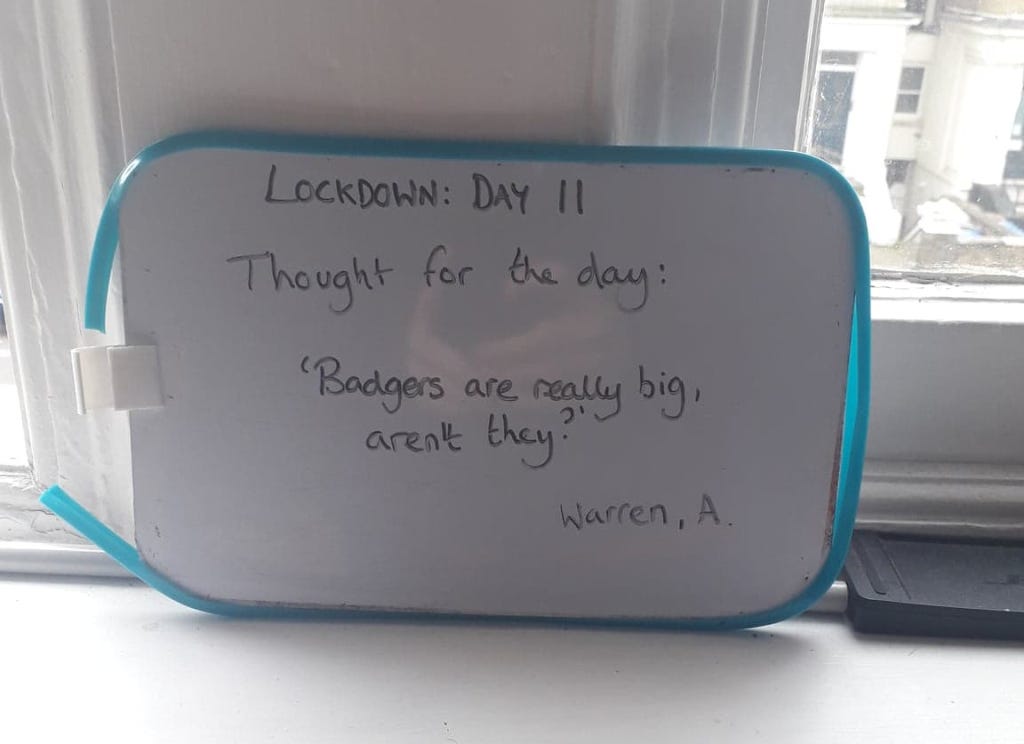 LOCKDOWN: DAY 11
Thought for the day:
'Badgers are really big,
aren't they?'
Warren, A.